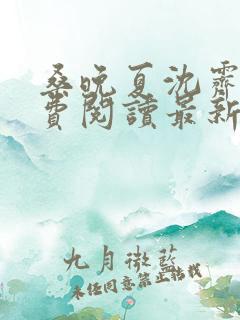 桑晚夏沈霽
費閱讀最新
九月微藍
未經同意禁止轉載